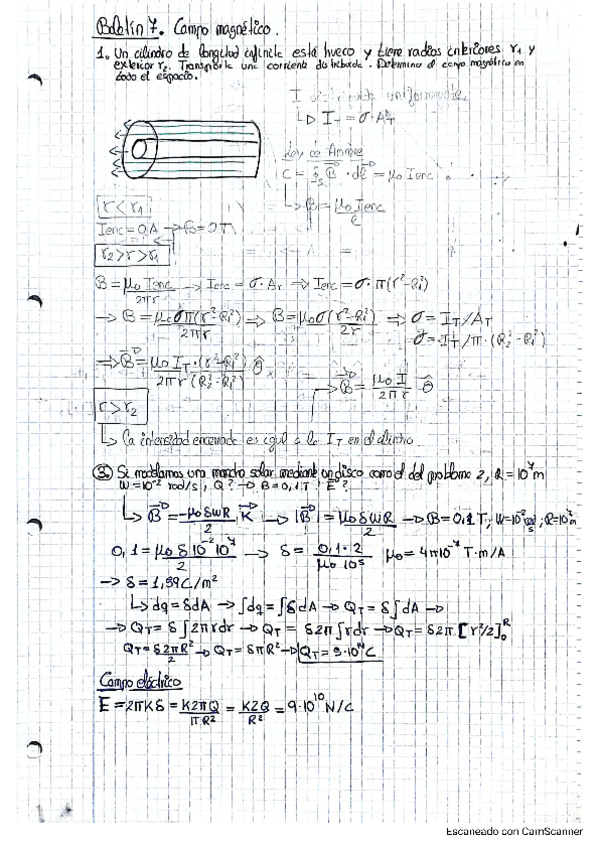 Boletín 7. Campo magnético.
1. Un cilindro de longitud infinita está hueco y tiene radios interiores r₁ y
exterior r₂. Transporta una corriente distribuida. Determina el campo magnético en
todo el espacio.
I distribuida uniformemente
↳ I_T = σ·A_T
Ley de Ampere
C = ∮ B⃗ · dl⃗ = μ₀ Ienc
↳ B = μ₀ Ienc / l
r < r₁
Ienc = 0A → B = 0T
r₂ > r > r₁
B = μ₀ Ienc / 2πr → Ienc = σ · A_r → Ienc = σ · π(r² - R₁²)
→ B = μ₀σπ(r² - R₁²) / 2πr ⇒ B = μ₀σ(r² - R₁²) / 2r ⇒ σ = I_T / A_T
σ = I_T / π · (R₂² - R₁²)
⇒ B⃗ = μ₀ I_T · (r² - R₁²) / 2πr (R₂² - R₁²) θ̂
r > r₂
→ B⃗ = μ₀ I / 2πr θ̂
↳ la intensidad encerrada es igual a la I_T en el cilindro
3. Si modelamos una mancha solar mediante un disco como el del problema 2, R = 10⁷ m
W = 10⁻² rad/s, Q? → B = 0,1 T, E⃗?
↳ B⃗ = -μ₀ δWR / 2 K⃗ → |B⃗| = μ₀ δWR / 2 → B = 0,1 T; W = 10⁻² rad/s; R = 10⁷ m
0,1 = μ₀ δ 10⁻² 10⁷ / 2 → δ = 0,1 · 2 / μ₀ 10⁵ μ₀ = 4π10⁻⁷ T·m/A
→ δ = 1,59 C/m²
↳ dq = δdA → ∫dq = ∫δdA → Q_T = δ∫dA →
→ Q_T = δ∫2πrdr → Q_T = δ2π∫rdr → Q_T = δ2π [r²/2]₀ᴿ
Q_T = δ2πR² / 2 → Q_T = δπR² → Q_T = 5·10¹⁴ C
Campo eléctrico
E = 2πKδ = K2πQ / πR² = K2Q / R² = 9·10¹⁰ N/C
Escaneado con CamScanner